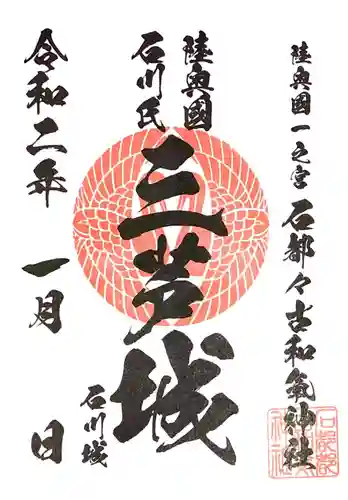 陸奥國一之宮 石都々古和氣神社
陸奥國
石川氏
三芦城
石川城
令和二年 一月 日